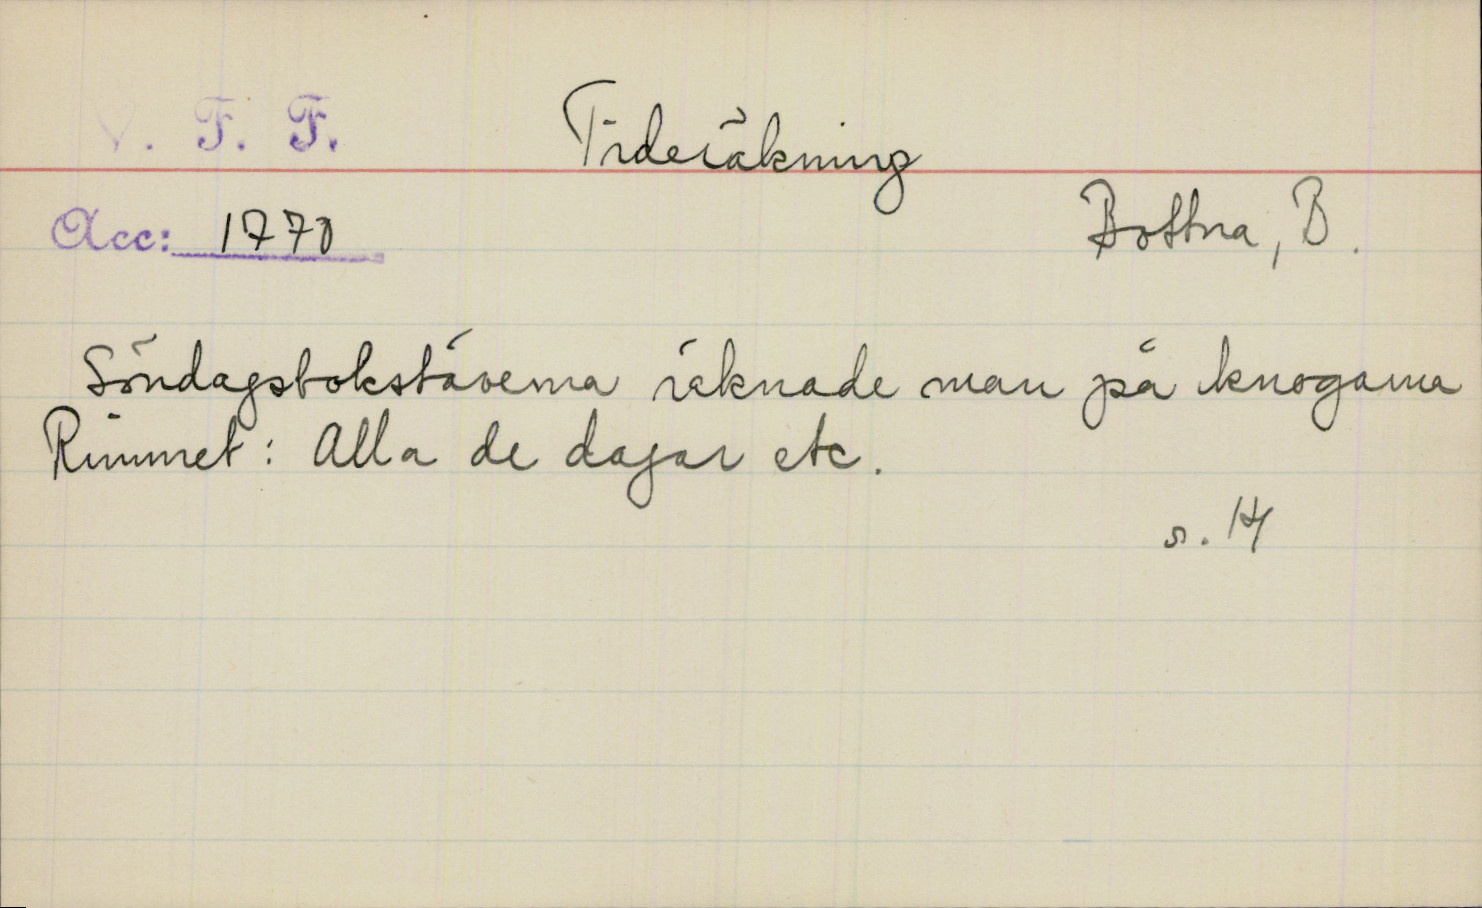 V. F. F.
Tideräkning
Acc: 1770
Bottna, B.
Söndagsbokstäverna räknade man på knogarna
Rimmet: Alla de dagar etc.
s. 14